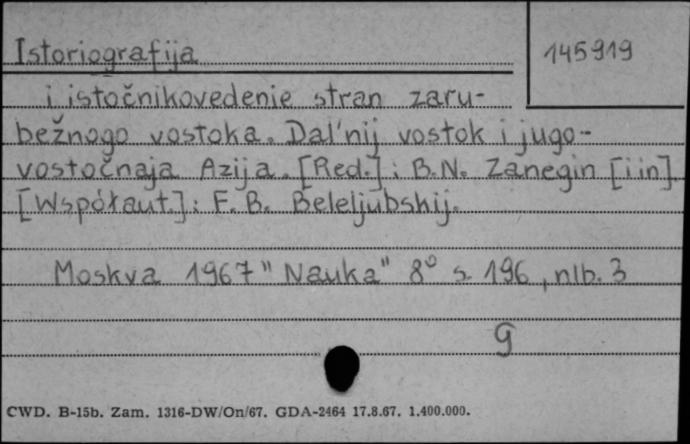 Istoriografija
145919
i istočnikovedenie stran zaru-
bežnogo vostoka. Dal'nij vostok i jugo-
vostočnaja Azija. [Red.]: B.N. Zanegin [i in].
[Współaut.]: F.B. Beleljubskij.
Moskva 1967 "Nauka" 8° s. 196, nlb. 3
g
CWD. B-15b. Zam. 1316-DW/On/67. GDA-2464 17.8.67. 1.400.000.